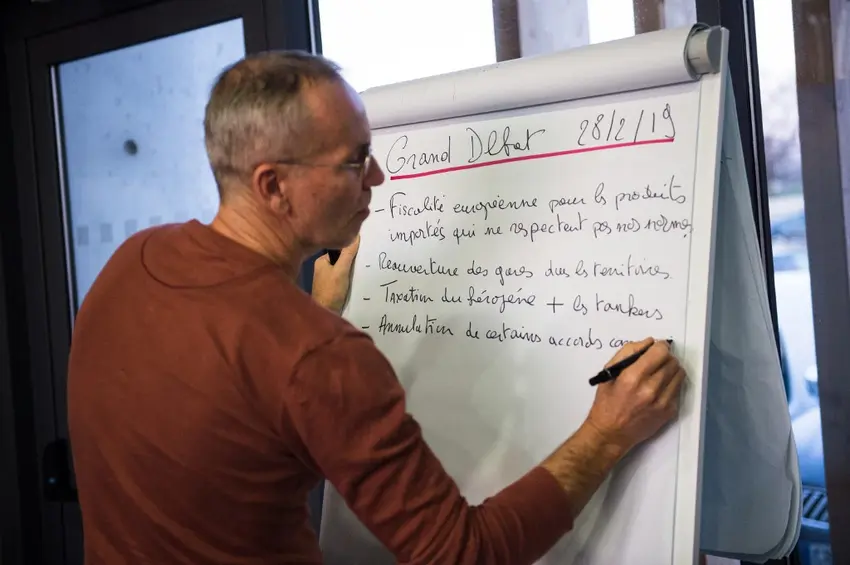 Grand Débat 28/2/19
- Fiscalité européenne pour les produits
importés qui ne respectent pas nos normes
- Réouverture des gares dans les territoires
- Taxation du kérozène + les tankers
- Annulation de certains accords